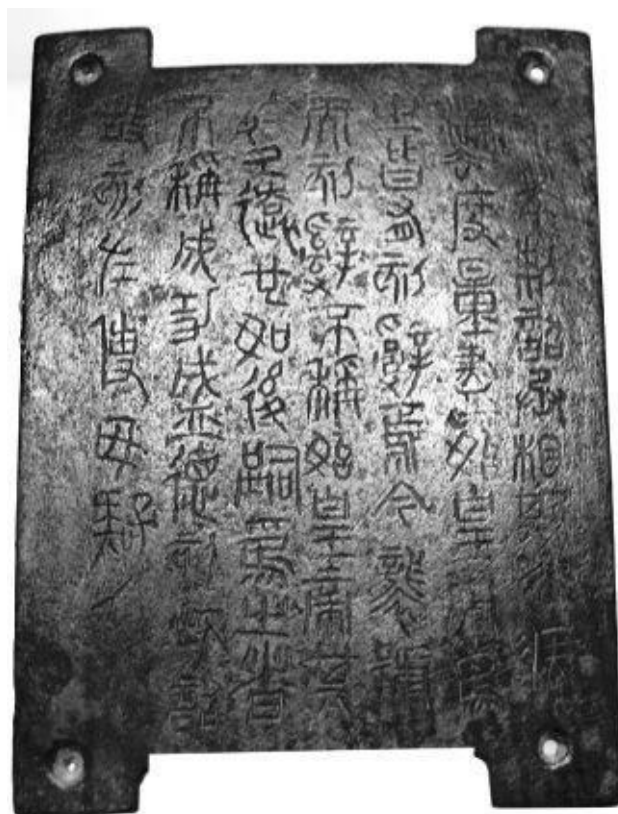 年制詔丞相斯去疾
灋度量盡始皇帝為
之皆有刻辭焉今襲號
而刻辭不稱始皇帝其
於久遠也如後嗣為之者
不稱成功盛德刻此詔
故刻左使毋疑